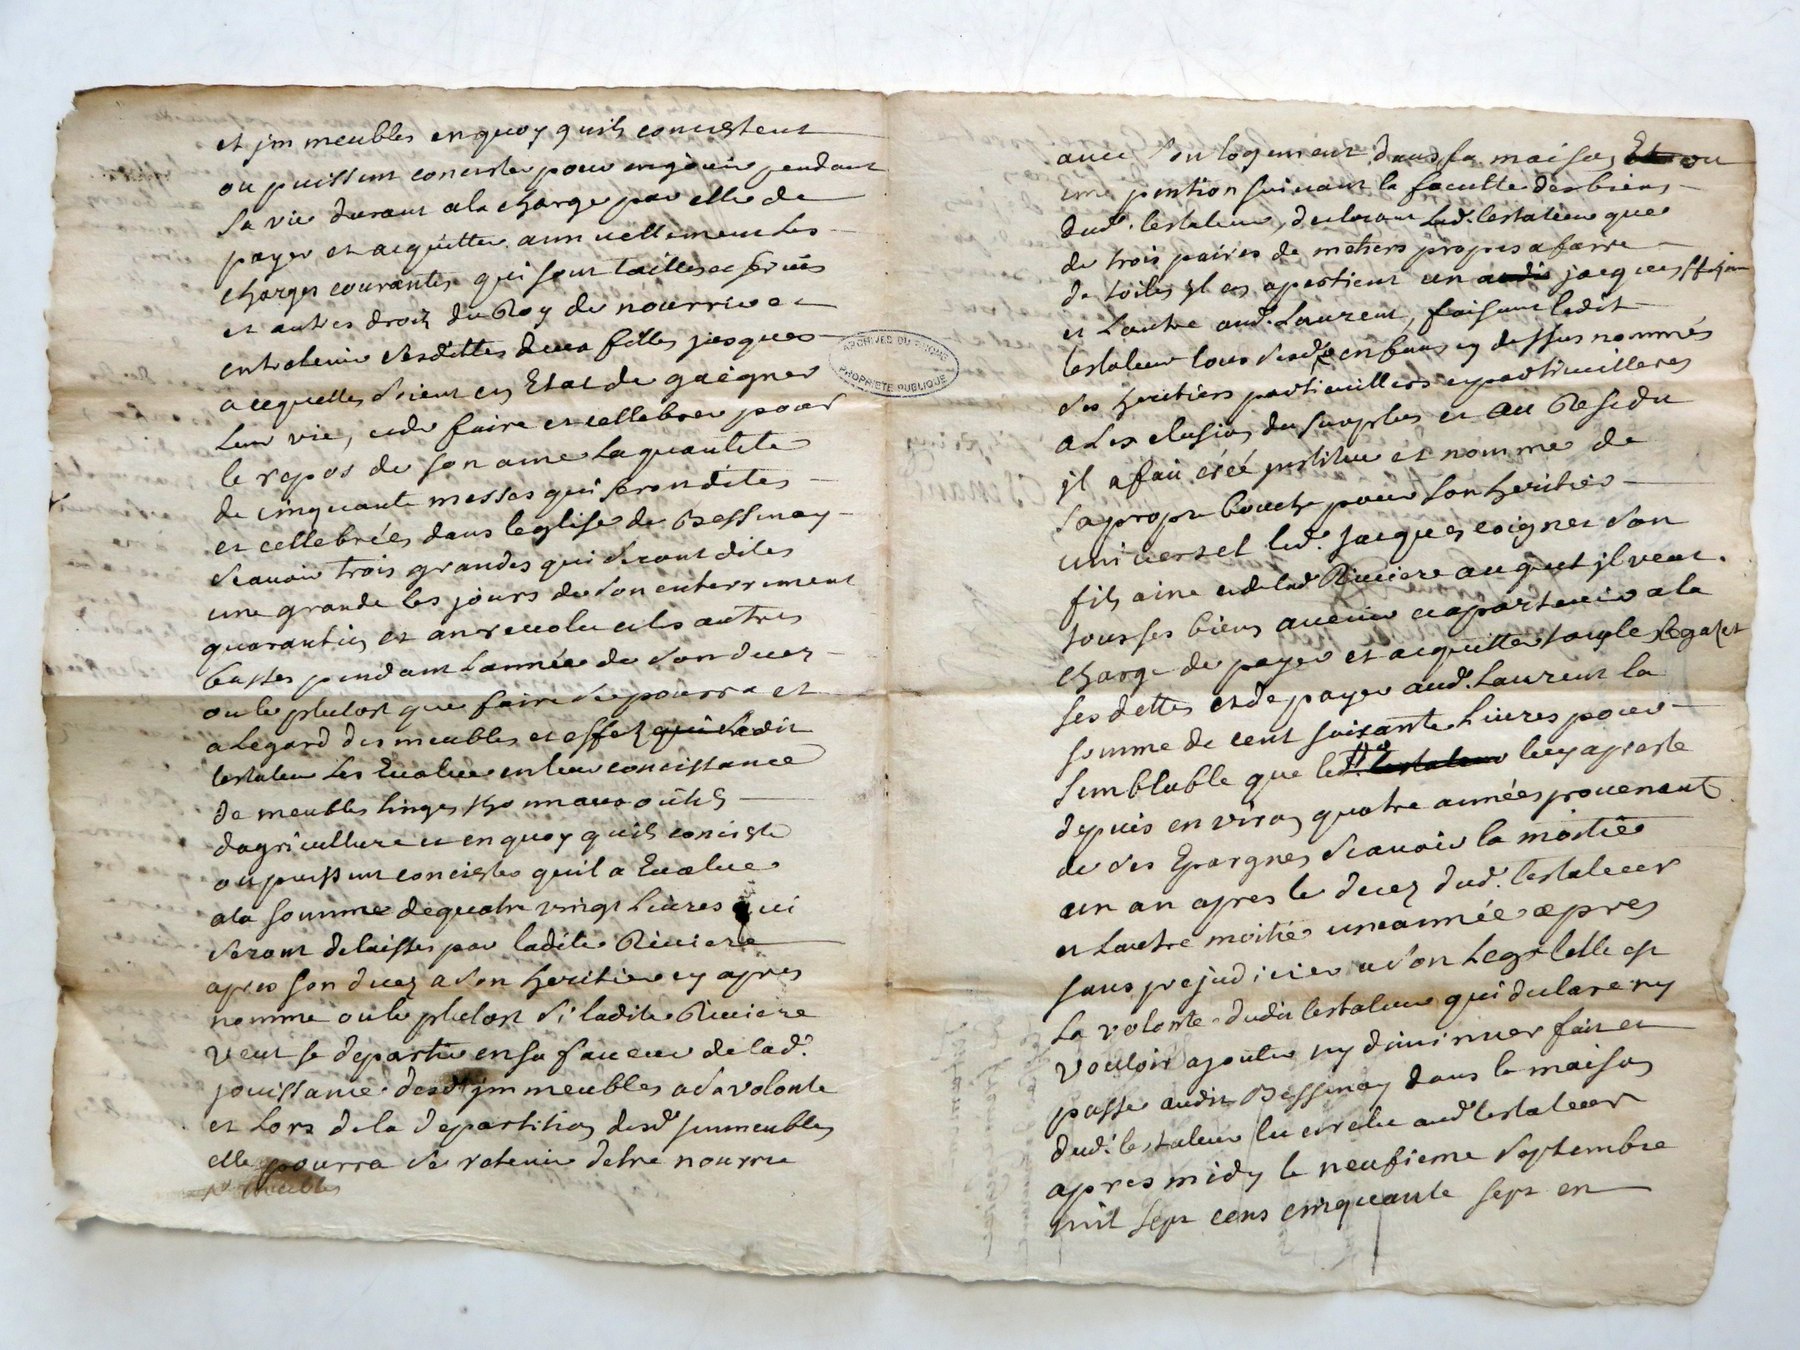 et jmmeubles enquoy quils concistent
ou puissent concister pour enjouir pendant
sa vie durant ala charge par elle de
payer et acquitter annuellement Les
charges courantes qui sont tailles et
et autres droits du Roy de nourrir et
entretenir desdittes deux filles jusques
acequelles soient en Etat de gaigner
Leur vie, et de faire et cellebrer pour
le repos de son ame La quantité
de cinquante messes qui seron dites
et cellebrées dans leglise de Bessenay
scauoir trois grandes qui seront dites
une grande les jours de son enterrement
quarantin et an revolu et les autres
basses pendant Lannée de son decez
ou le plutost que faire se pourra et
a Legard des meubles et effetz qui Ledit
testateur Les Evalue en leur concistance
de meubles linges thonnaux outils
dagriculture et en quoy quils conciste
ou puissent concister quil a Evalue
ala somme de quatre vingt Liures qui
seront delaisses par ladite Riuiere
apres son decez a son heritier cy apres
nomme ou le plutost si ladite Riuiere
veut se departir en sa faueur de lad.
jouissance desd jmmeubles a sa volonte
et Lors de la departition desd jmmeubles
elle pourra se retenir detre nourrie
meubles
ARCHIVES DU RHONE
PROPRIETE PUBLIQUE
auec son logement dans sa maison Et ou
une pention suiuant la faculte des biens
dud. testateur, declarant Led. testateur que
de trois paires de metiers propres a faire
de toiles jl en apartient un audit jacques
et Lautre aud. Laurent, faisant ledit
testateur tous sesd. enfans cy dessus nommés
ses heritiers particuilliers et particuilleres
a Lexclusion du surplus et au Residu
jl a fait créé jnstitue et nomme de
sa propre bouche pour son heritier
universel led. Jacques coignet son
fils aine et de lad Riuiere auquel jl veut
tous ses biens auenir et apartenir a la
charge de payer et acquitter tous les legatz et
ses dettes et de payer aud. Laurent la
somme de cent soixante Liures pour
semblable que led. testateur luy a preste
depuis environ quatre années prouenant
de ses Epargnes scauoir la moitié
un an apres le decez dud. testateur
et Lautre moitié une année apres
sans prejudicier a son Legs telle est
La volonté dudit testateur qui declare ny
vouloir ajouter ny diminuer fait et
passe audit Bessenay dans la maison
dud. testateur lu et relu aud testateur
apres midy le neufieme Septembre
mil sept cens cinquante sept en